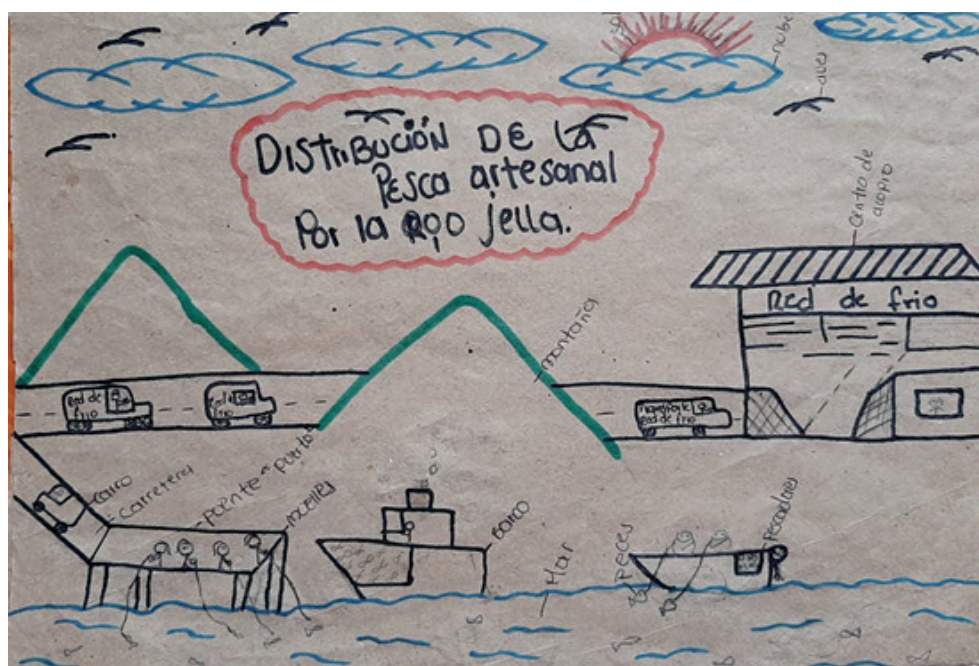 nube
aves
DistriBución DE la
Pesca artesanal
Por la Rqojella.
Centro de
acopio
Red de frio
montaña
Red de
frio
frio
Transporte
Red de frio
carro
carretera
Puente
Puntos
muelles
Barco
Mar
Peces
Pescadores